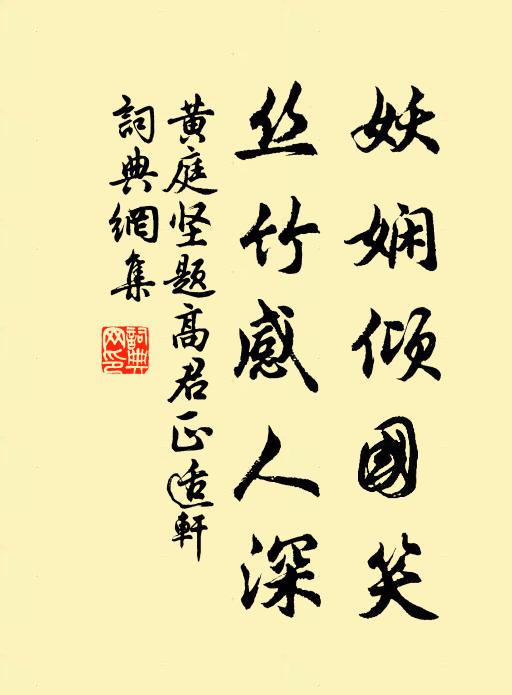 妖娴倾國笑
丝竹感人深
黄庭坚题高君正适軒
詞典網集
詞典網印